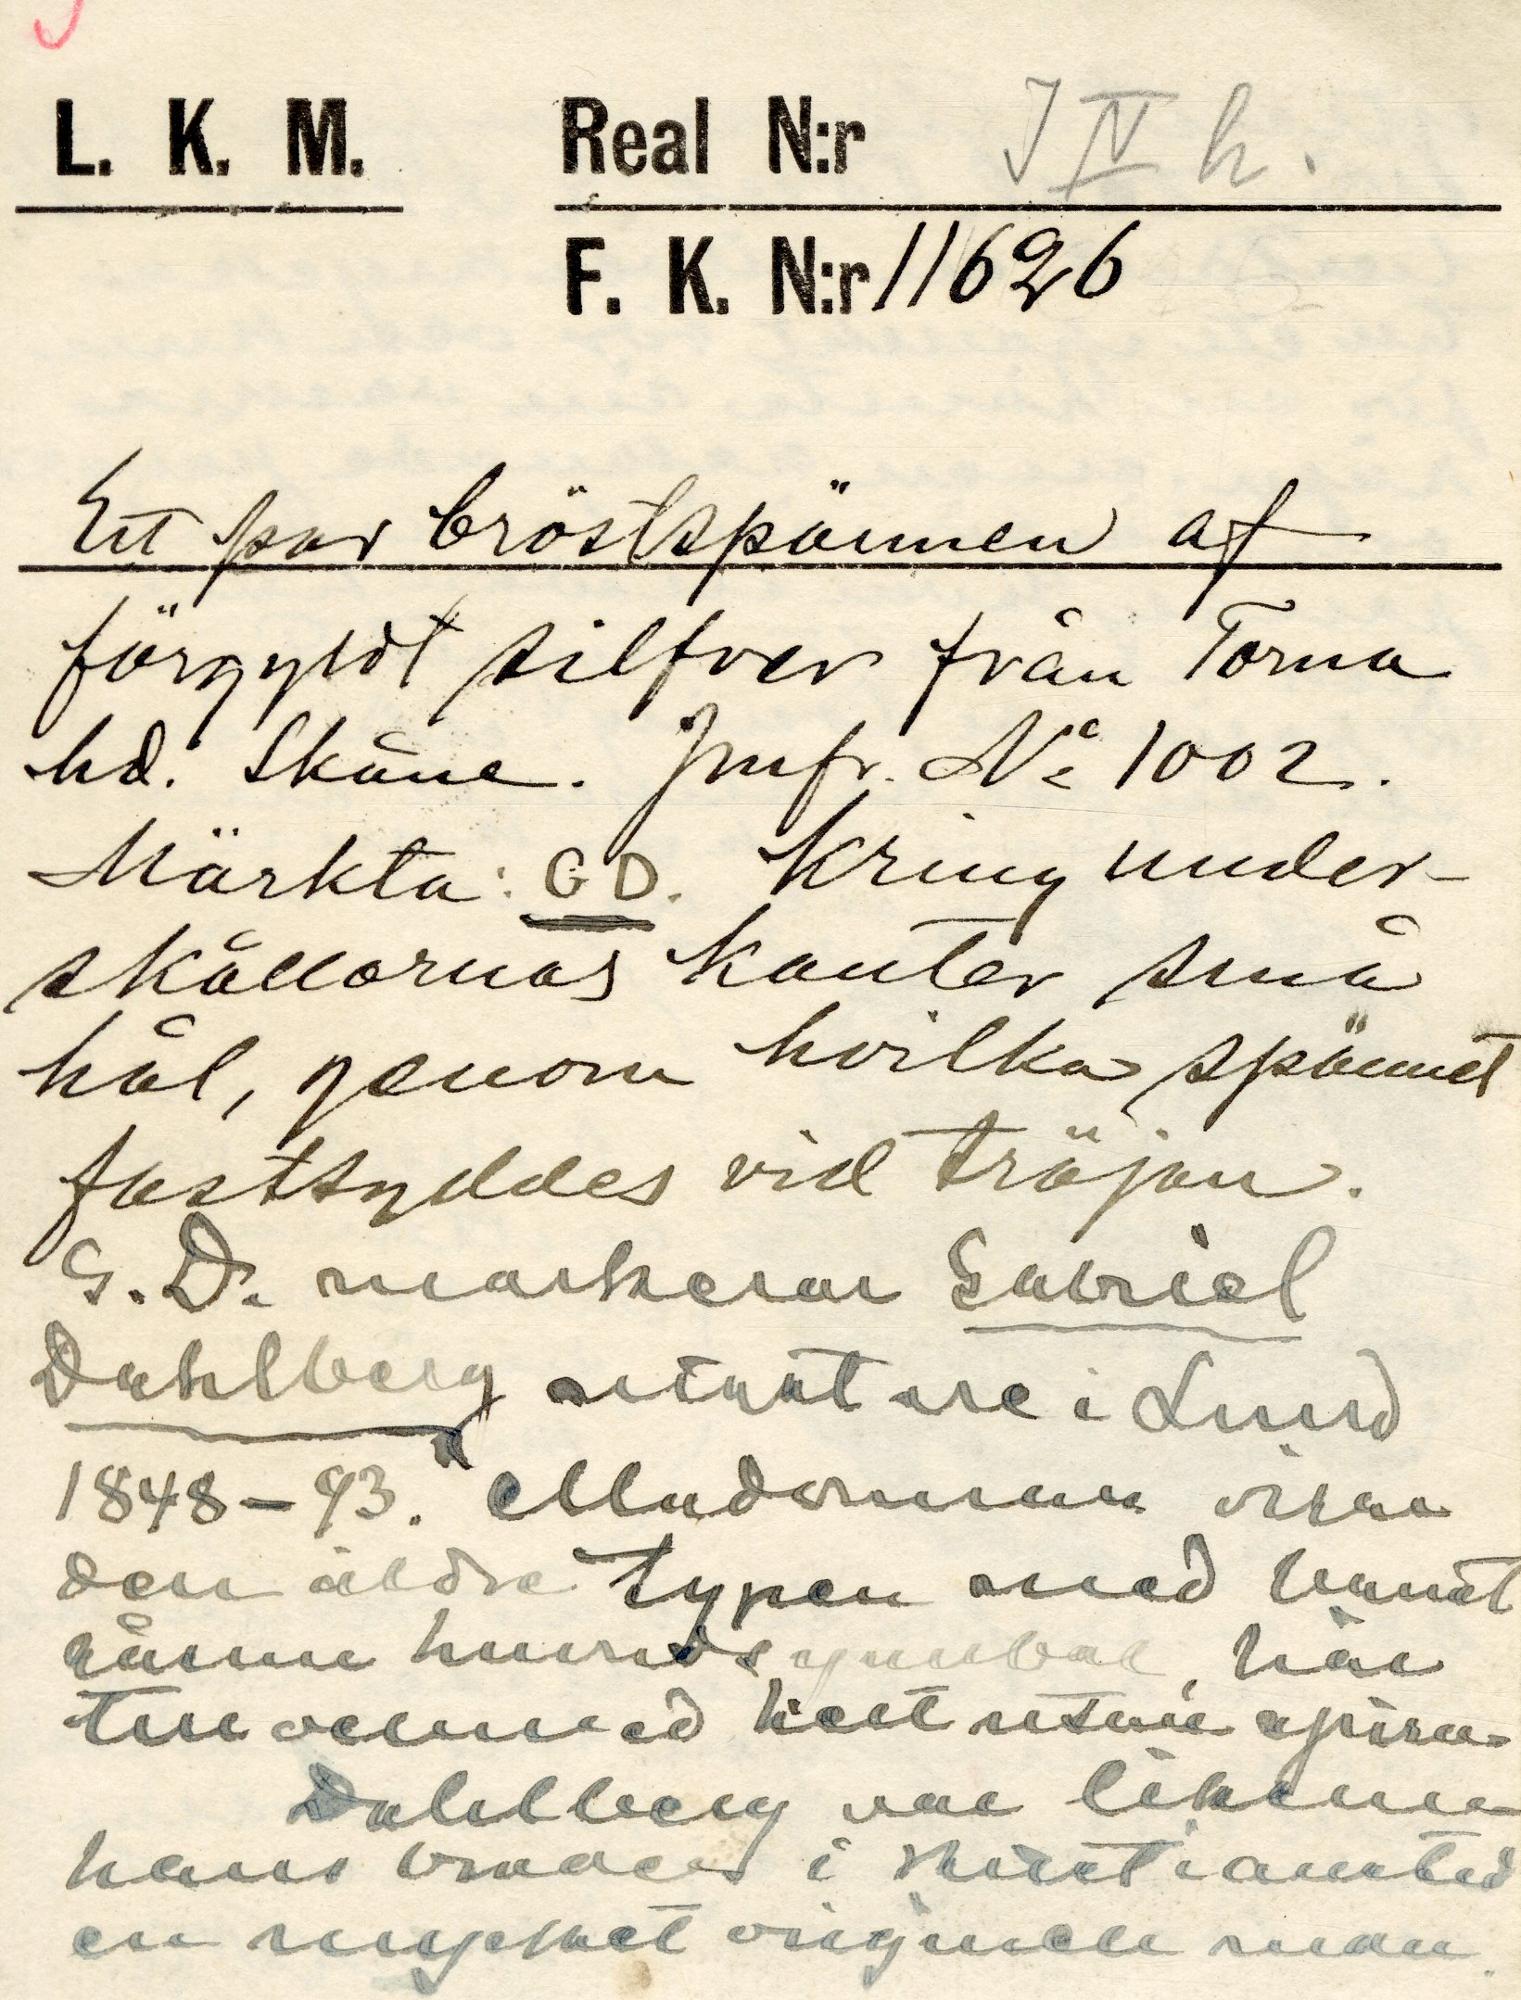 L. K. M. Real N:r I IV h.
F. K. N:r 11626
Ett par bröstspännen af
förgyldt silfver från Torna
hd. Skåne. Jmfr. No 1002.
Märkta: GD. Kring under-
skållornas kanter små
hål, genom hvilka spännet
fastsyddes vid tröjan.
G. D. markerar Gabriel
Dahlberg i Lund
1848-93. Madonnan visar
den äldre typen med
hunds här
med helt utan
Dahlberg var
hans i
en mycket man.